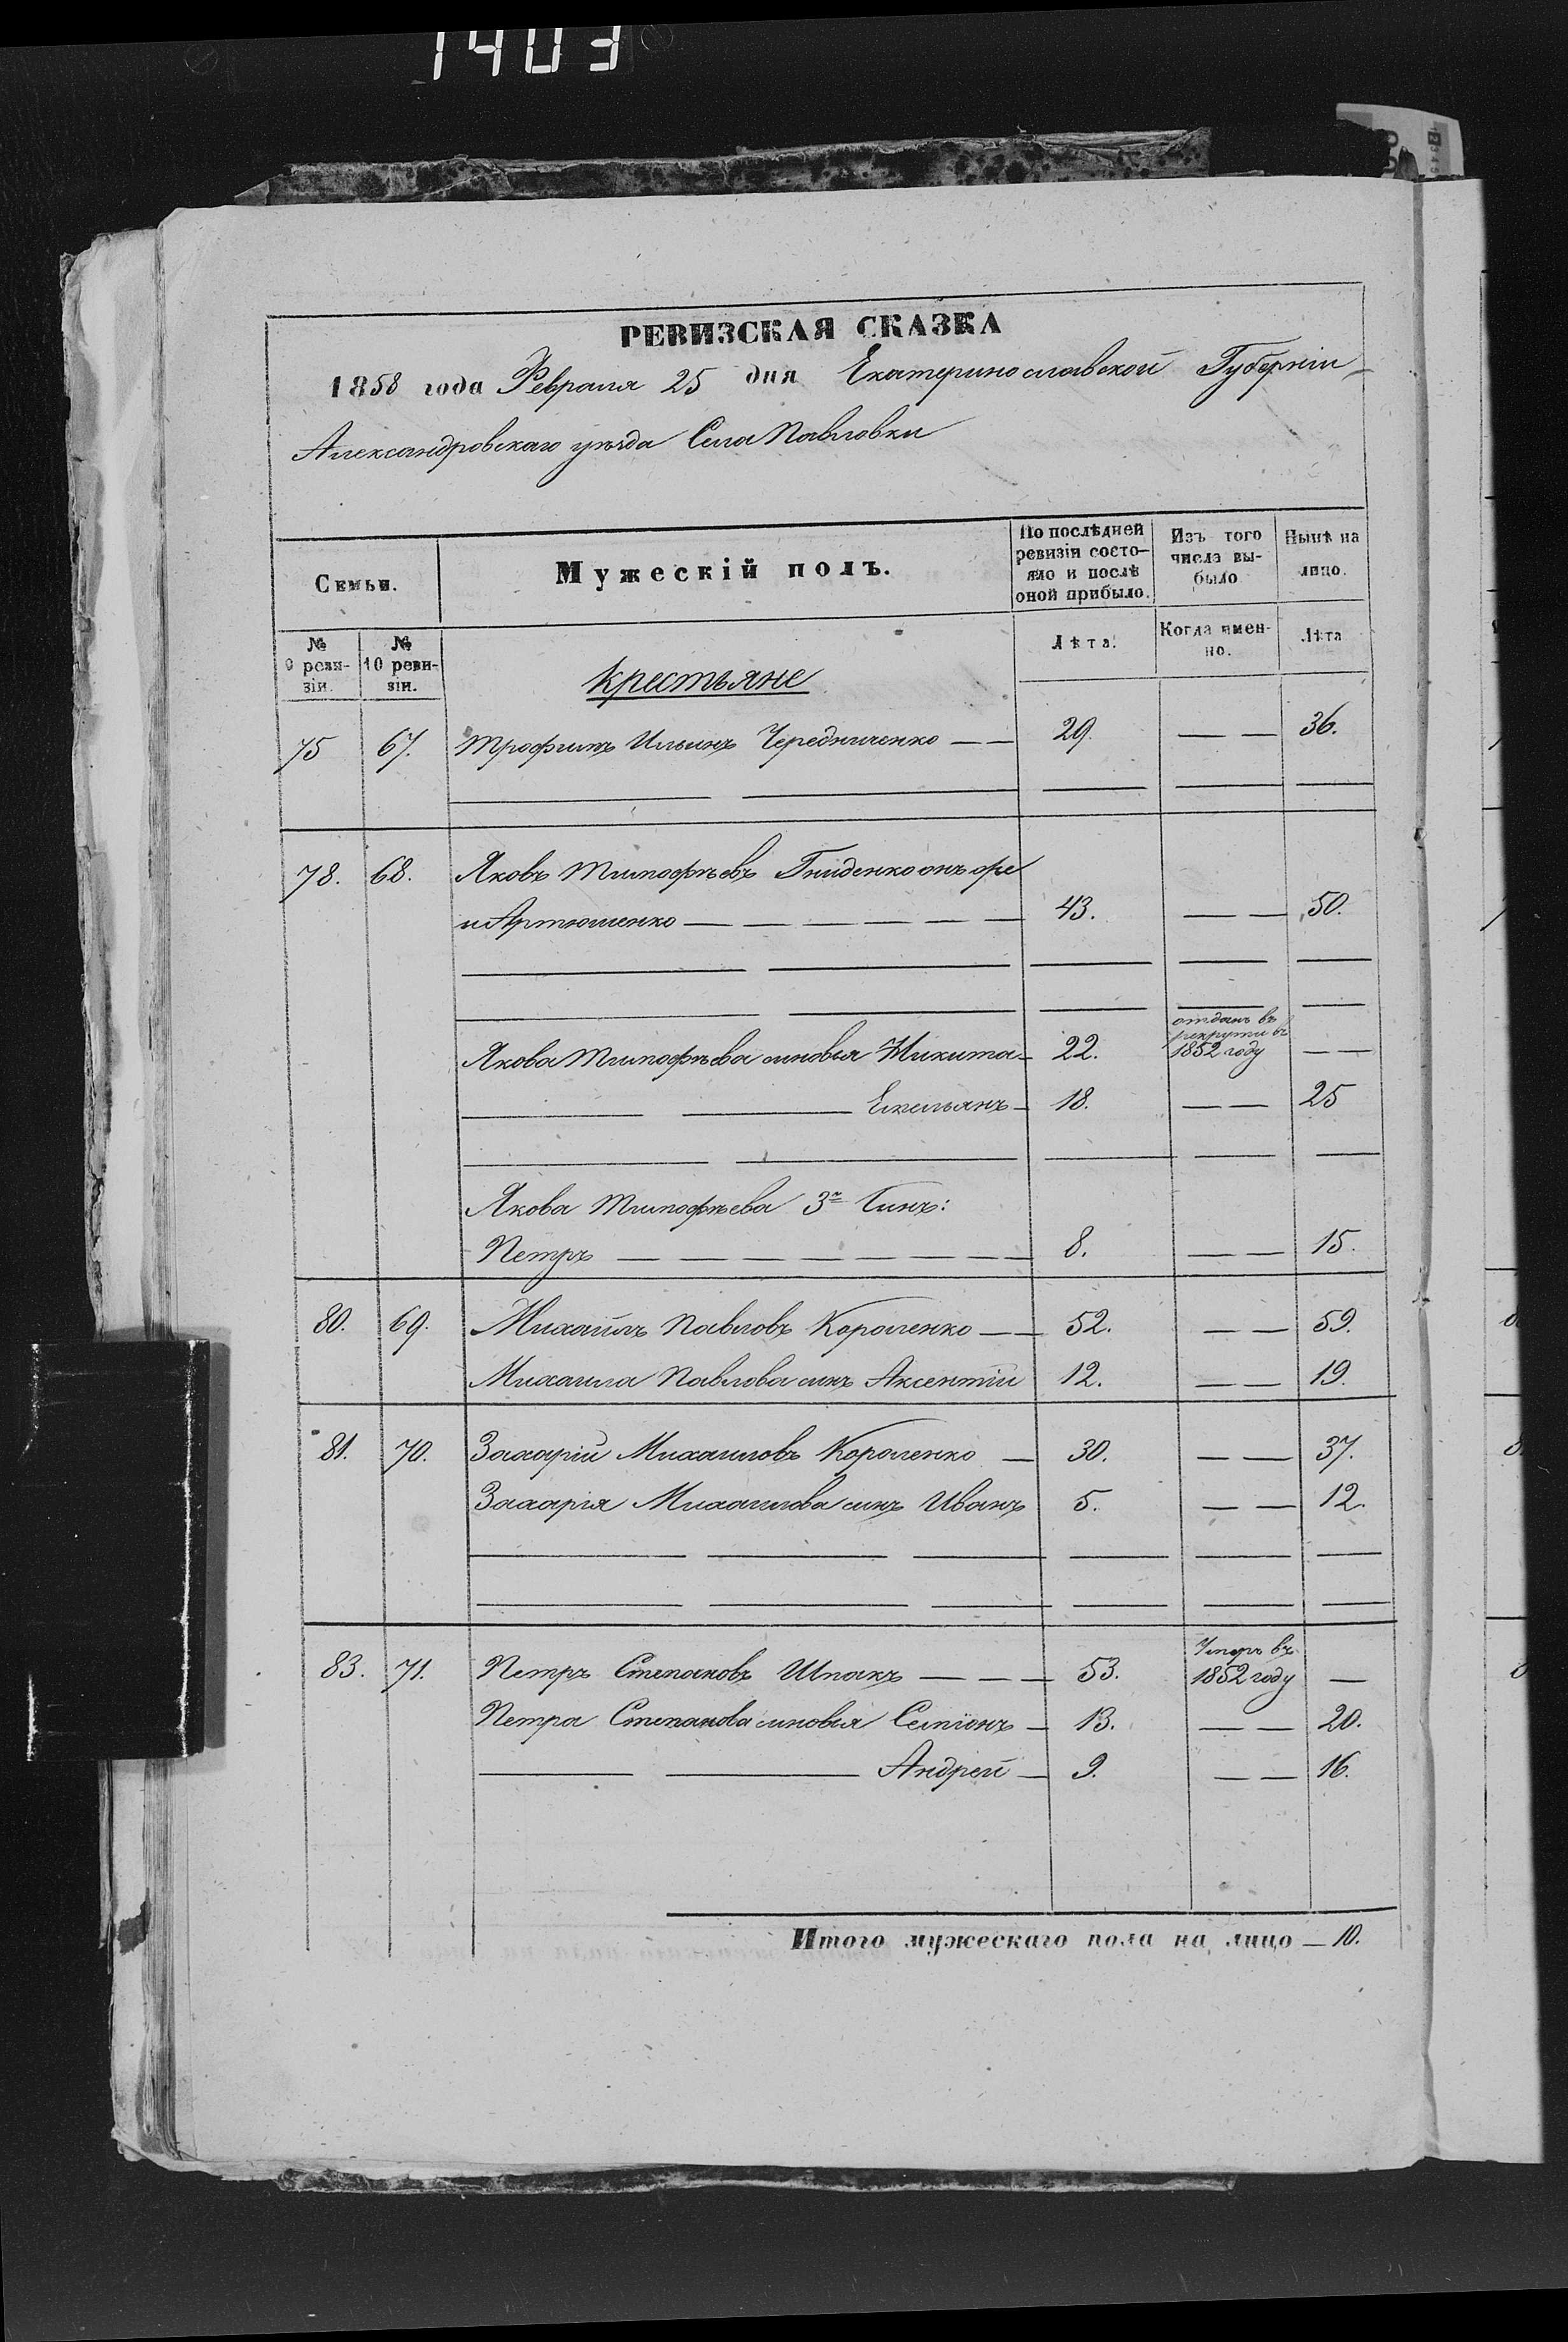 1403
РЕВИЗСКАЯ СКАЗКА
1858 года Февраля 25 дня Екатеринославской Губерніи
Александровскаго уѣзда Села Павловки
Семьи. Мужескій полъ. По послѣдней ревизіи состояло и послѣ оной прибыло. Изъ того числа выбыло Нынѣ на лицо.
№ 9 ревизіи. № 10 ревизіи. Лѣта. Когда именно. Лѣта
Крестьяне
75 67. Трофимъ Ильинъ Чередниченко — — 29. — — 36.
78. 68. Яковъ Тимофѣевъ Гниденко онъ же
и Артюшенко — — — — — — 43. — — 50.
Якова Тимофѣева сыновья Никита — 22. отданъ въ рекруты въ 1852 году — —
— — Емельянъ — 18. — — 25
Якова Тимофѣева 3й Сынъ:
Петръ — — — — — — — — 8. — — 15.
80. 69. Михайлъ Павловъ Короленко — — 52. — — 59.
Михаила Павлова сынъ Аксентій 12. — — 19.
81. 70. Захарій Михаиловъ Короленко — 30. — — 37.
Захарія Михаилова сынъ Иванъ 5. — — 12.
83. 71. Петръ Степановъ Шпакъ — — — 53. Умеръ въ 1852 году —
Петра Степанова сыновья Семіонъ — 13. — — 20.
— — Андрей — 9. — — 16.
Итого мужескаго пола на лицо — 10.